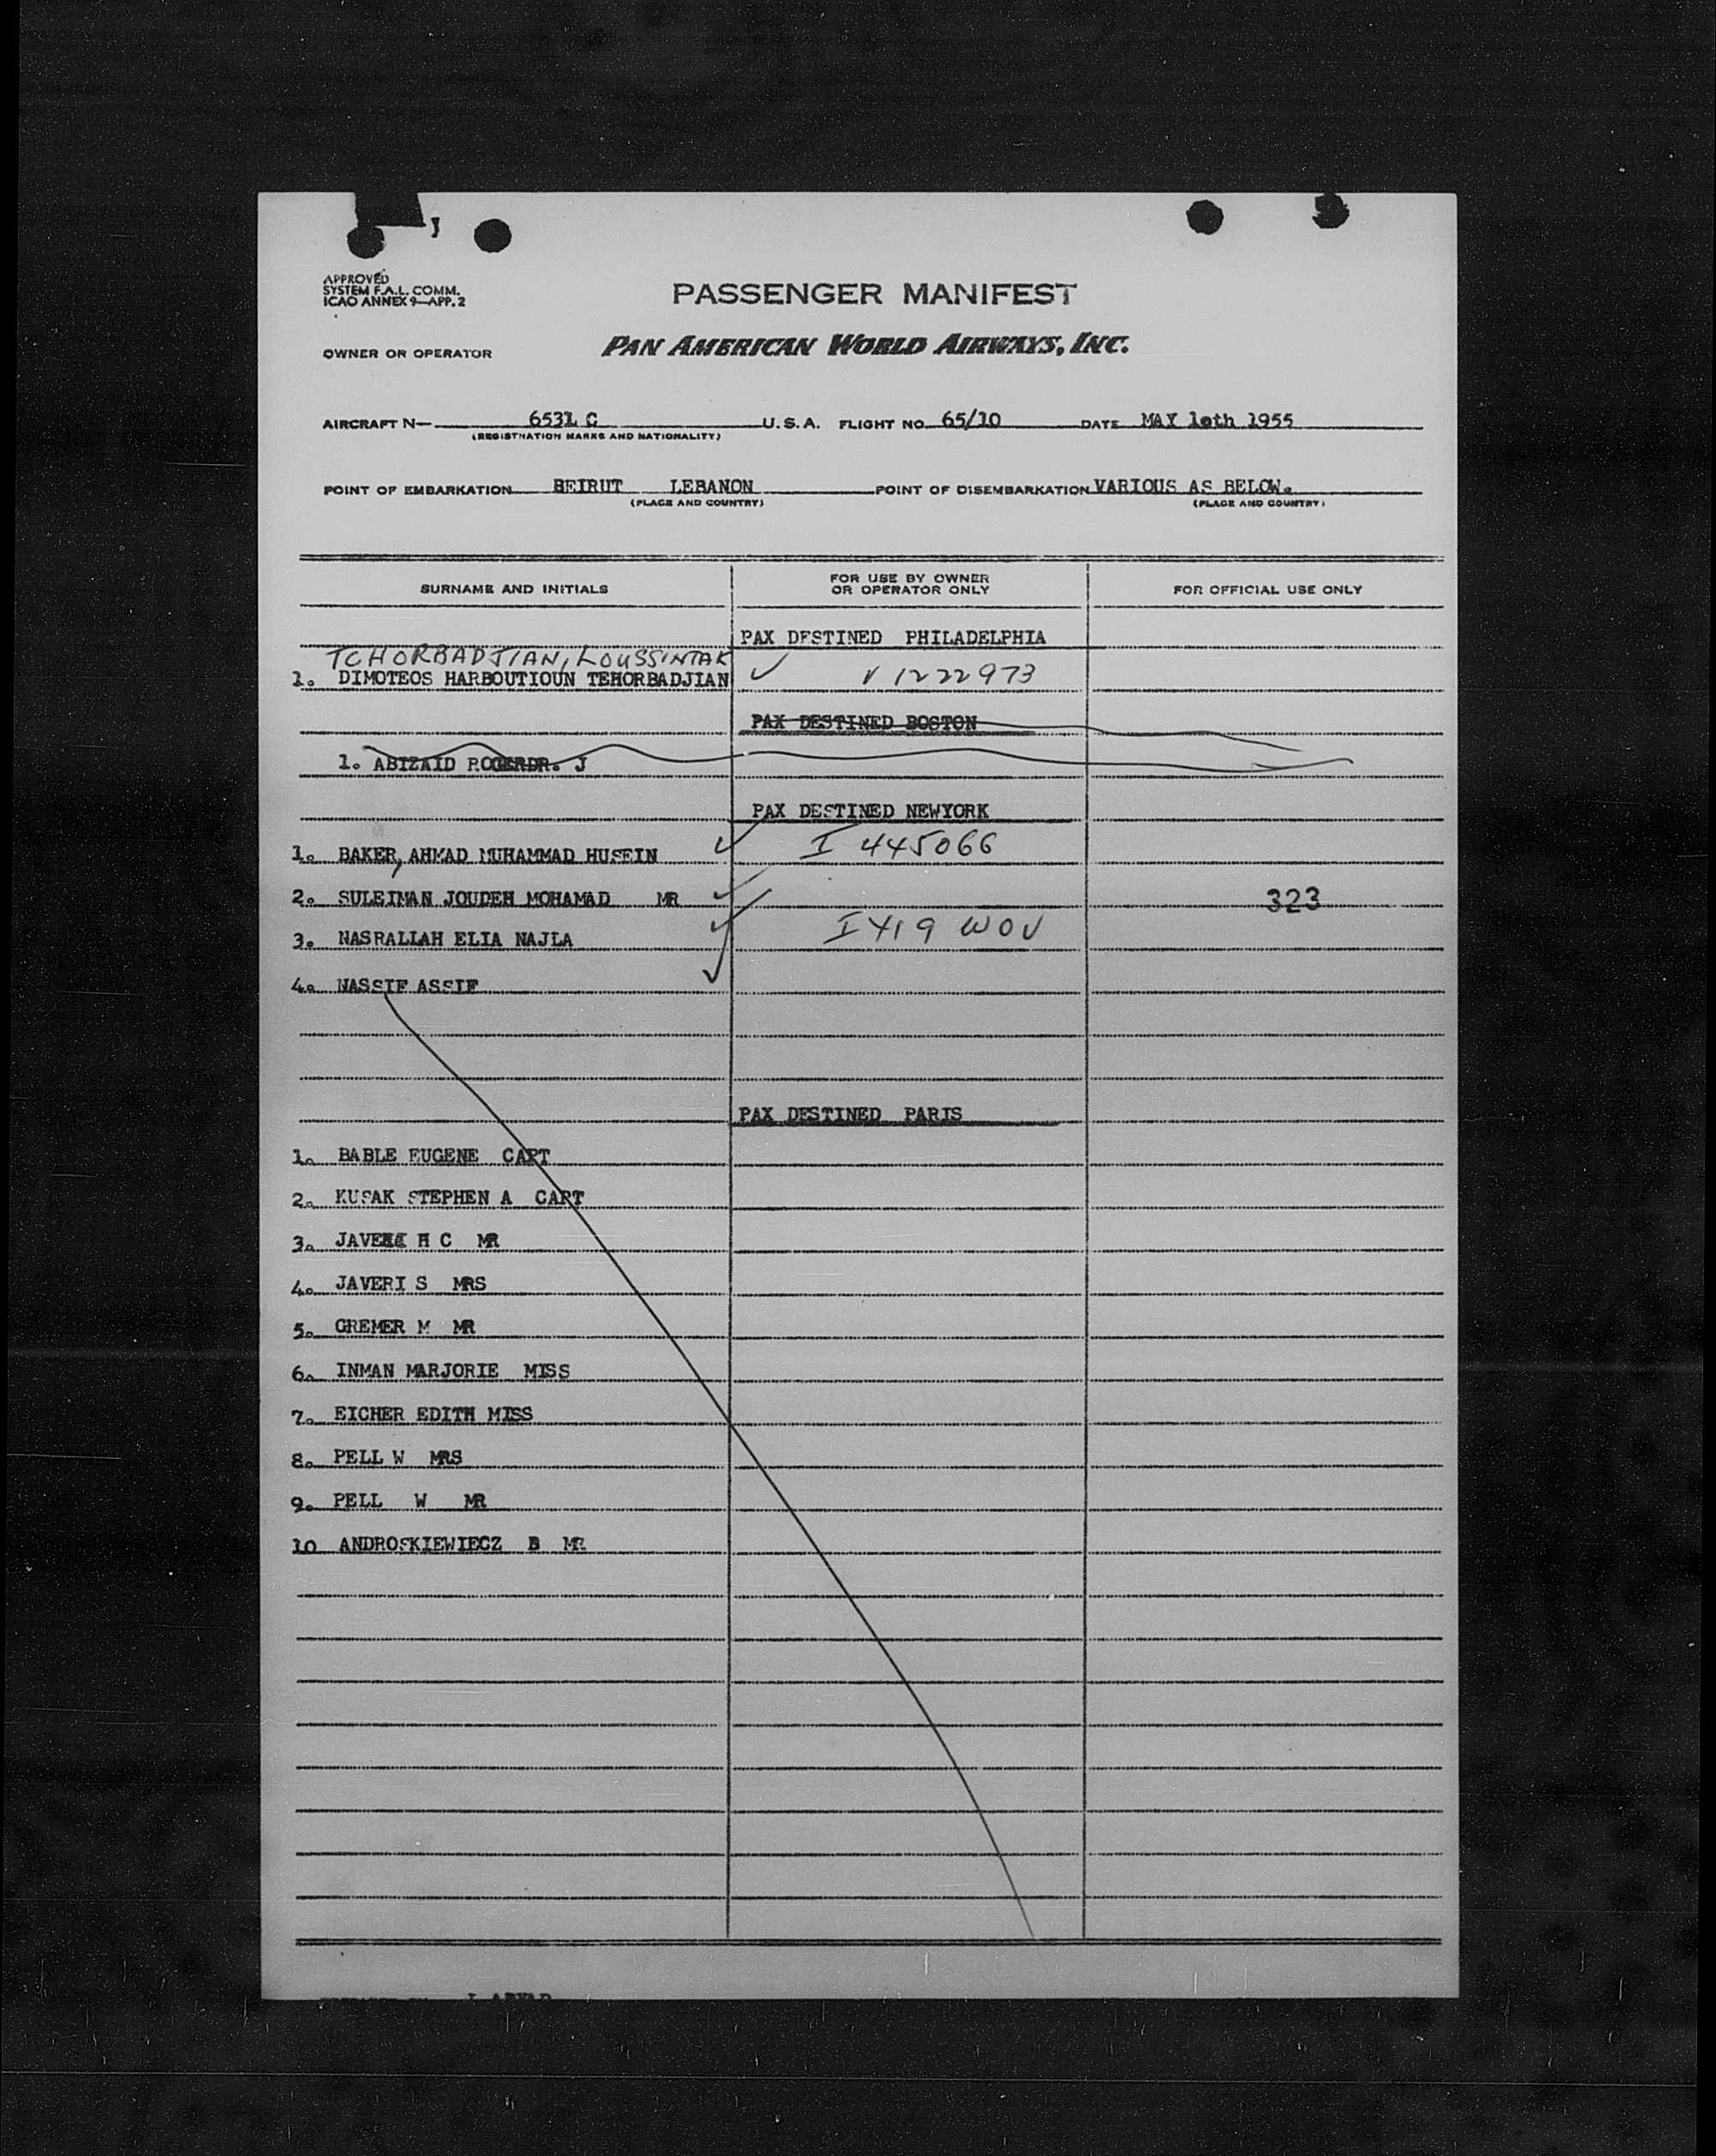 APPROVED
SYSTEM F.A.L. COMM.
ICAO ANNEX 9—APP. 2
PASSENGER MANIFEST
OWNER OR OPERATOR PAN AMERICAN WORLD AIRWAYS, INC.
AIRCRAFT N— 6531 C U. S. A. FLIGHT NO. 65/10 DATE MAY 10th 1955
(REGISTRATION MARKS AND NATIONALITY)
POINT OF EMBARKATION BEIRUT LEBANON POINT OF DISEMBARKATION VARIOUS AS BELOW.
(PLACE AND COUNTRY) (PLACE AND COUNTRY)
SURNAME AND INITIALS FOR USE BY OWNER OR OPERATOR ONLY FOR OFFICIAL USE ONLY
PAX DESTINED PHILADELPHIA
TCHORBADJIAN, LOUSSINTAK
1. DIMOTEOS HARBOUTIOUN TEHORBADJIAN ✓ V 1222973
PAX DESTINED BOSTON
1. ABIZAID ROGERDR. J
PAX DESTINED NEWYORK
1. BAKER, AHMAD MUHAMMAD HUSEIN ✓ I 445066
2. SULEIMAN JOUDEH MOHAMAD MR ✓ 323
3. NASRALLAH ELIA NAJLA ✓ I 419 WOV
4. NASSIF ASSIF ✓
PAX DESTINED PARIS
1. BABLE EUGENE CAPT
2. KUSAK STEPHEN A CAPT
3. H C MR
4. JAVERI S MRS
5. GREMER M MR
6. INMAN MARJORIE MISS
7. EICHER EDITH MISS
8. PELL W MRS
9. PELL W MR
10 ANDROSKIEWIECZ B MR